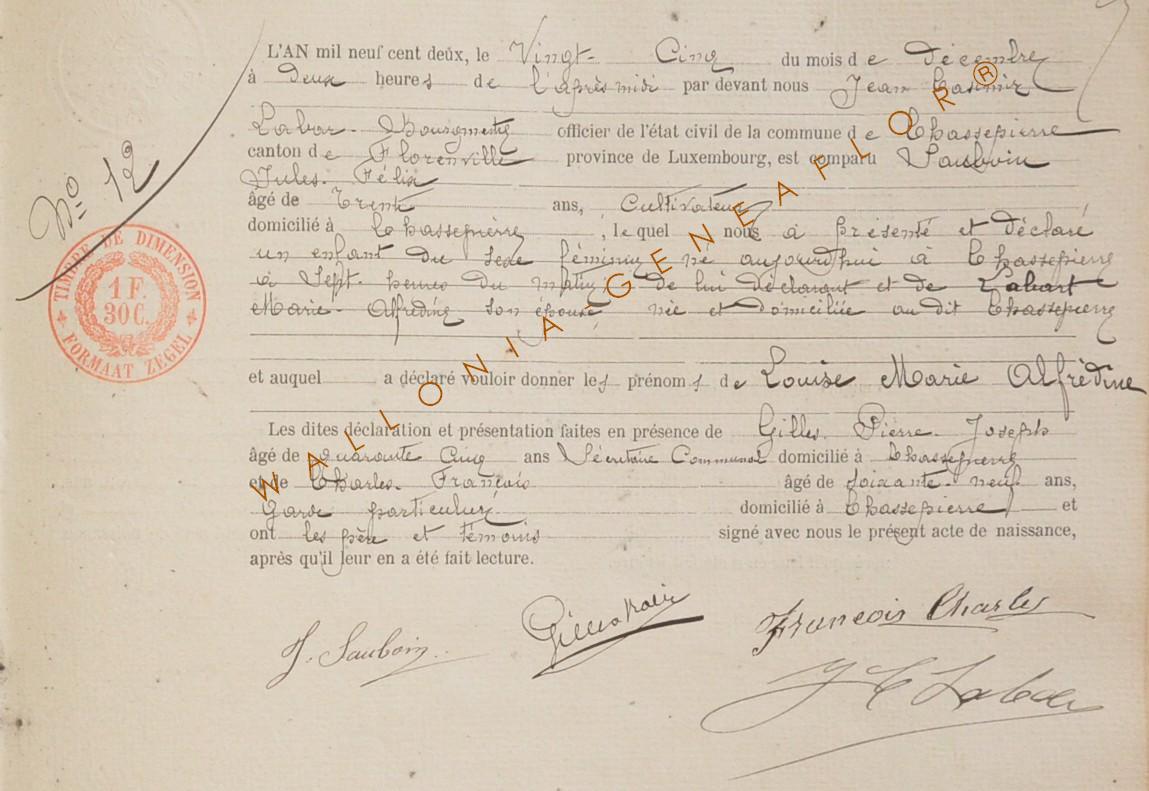 L'AN mil neuf cent deux, le Vingt- Cinq du mois de décembre
à deux heures de l'après midi par devant nous Jean Casimir
Labar- Bourgmestre officier de l'état civil de la commune de Chassepierre
canton de Florenville province de Luxembourg, est comparu Sauboin
Jules- Félix
âgé de trente ans, Cultivateur
domicilié à Chassepierre, le quel nous à présenté et déclaré
un enfant du sexe féminin né aujourd'hui à Chassepierre
à Sept- heures du matin de lui déclarant et de
Marie- Alfrédine son épouse née et domiciliée au dit Chassepierre
et auquel a déclaré vouloir donner les prénoms de Louise Marie Alfrédine
Les dites déclaration et présentation faites en présence de Gilles- Pierre- Joseph
âgé de quarante Cinq ans Secrétaire Communal domicilié à Chassepierre
et de Charles- François âgé de soixante- neuf ans,
Garde particulier domicilié à Chassepierre et
ont les père et témoins signé avec nous le présent acte de naissance,
après qu'il leur en a été fait lecture.
No 12
TIMBRE DE DIMENSION
1 F.
30 C.
FORMAAT ZEGEL
J. Sauboin
François Charles
J C Labar
WALLONIA GENEAPLOR®